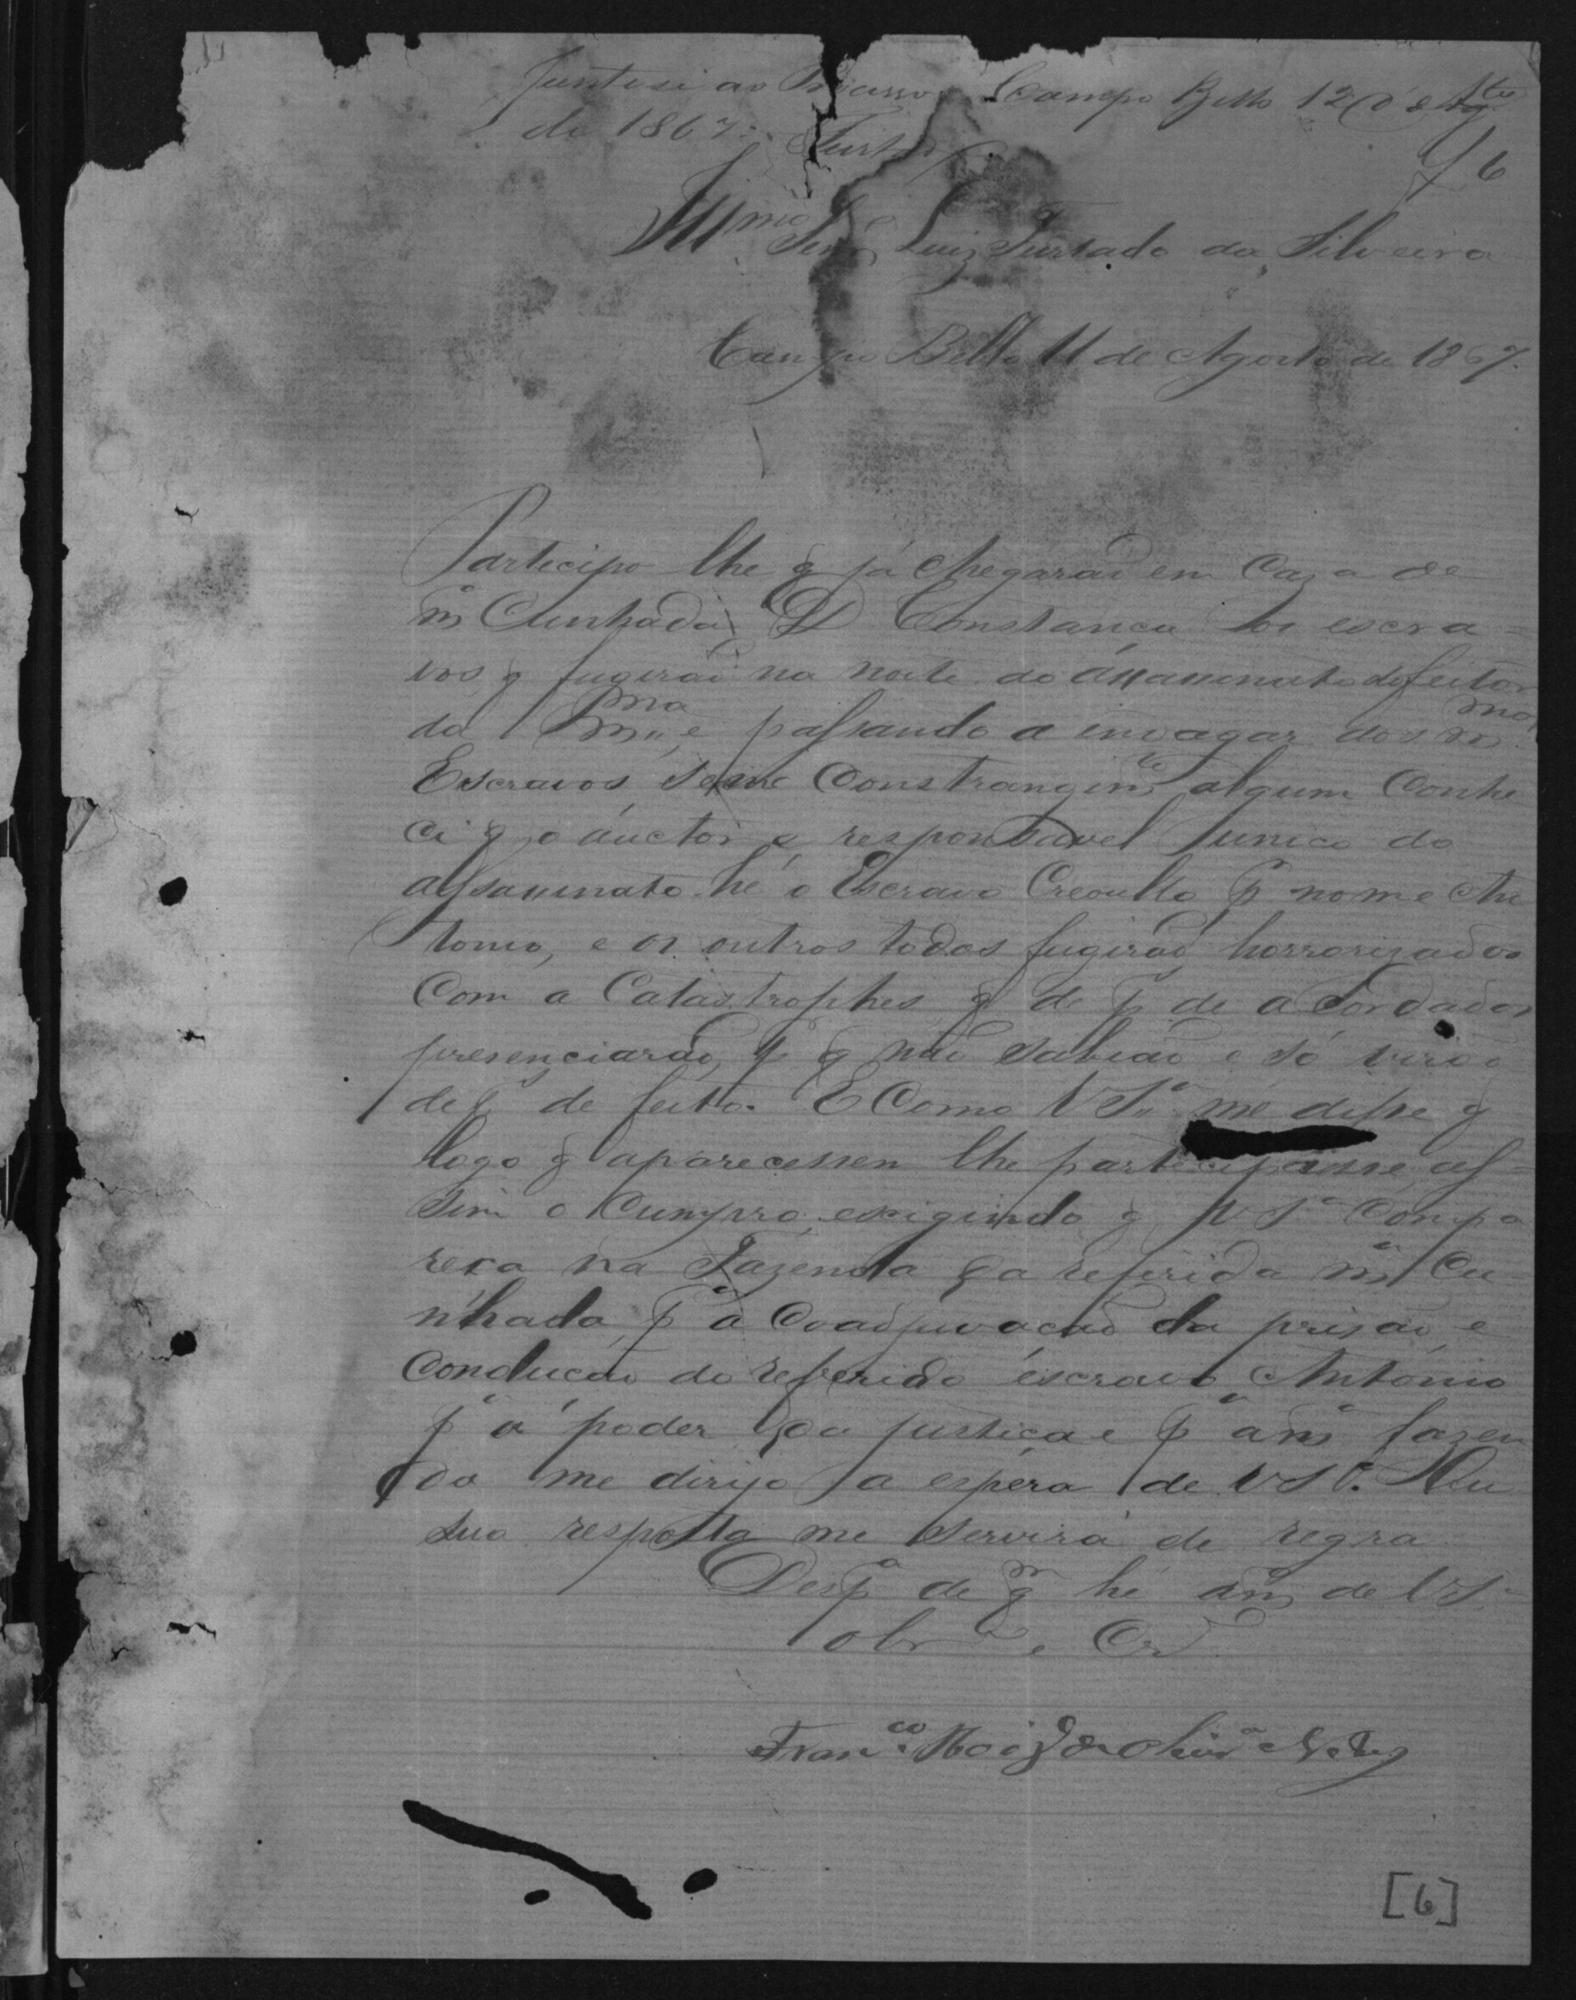 Juntese ao Processo Campo Bello 12 d' Ag.to
de 1867. Furtado
6
Illmo Senr Luiz Furtado da Silveira
Campo Bello 11 de Agosto de 1867.
Participo lhe q já chegarão em Caza de
ma Cunhada D Constança os escra-
vos, q fugirão na noite do assassinato do feitor
da mma, e passando a indagar dos mmos
Escravos sem Constrangimto algum Conhe
ci q o auctor e responsavel unico do
assassinato hé o Escravo Creoullo pr nome An
tonio, e os outros todos fugirão horrorizados
Com a Catastrophes q de ps de acordados
presenciarão, pr q não sabião e só virão
de ps de feito. E Como V Sa me disse q
logo q aparecessem lhe participasse, as-
sim o Cumpro, exigindo q V Sa Compa
reça na Fazenda da referida ma Cu
nhada, pa a Coadjuvação da prisão e
Condução do referido escravo Antonio
pa o poder da justiça e pa asm fazen
do me dirijo a espera de V Sa.
sua resposta me servirá de regra
Desp.a de qm hé de V Sa
obr e Cr
Franco de Olivra
[6]